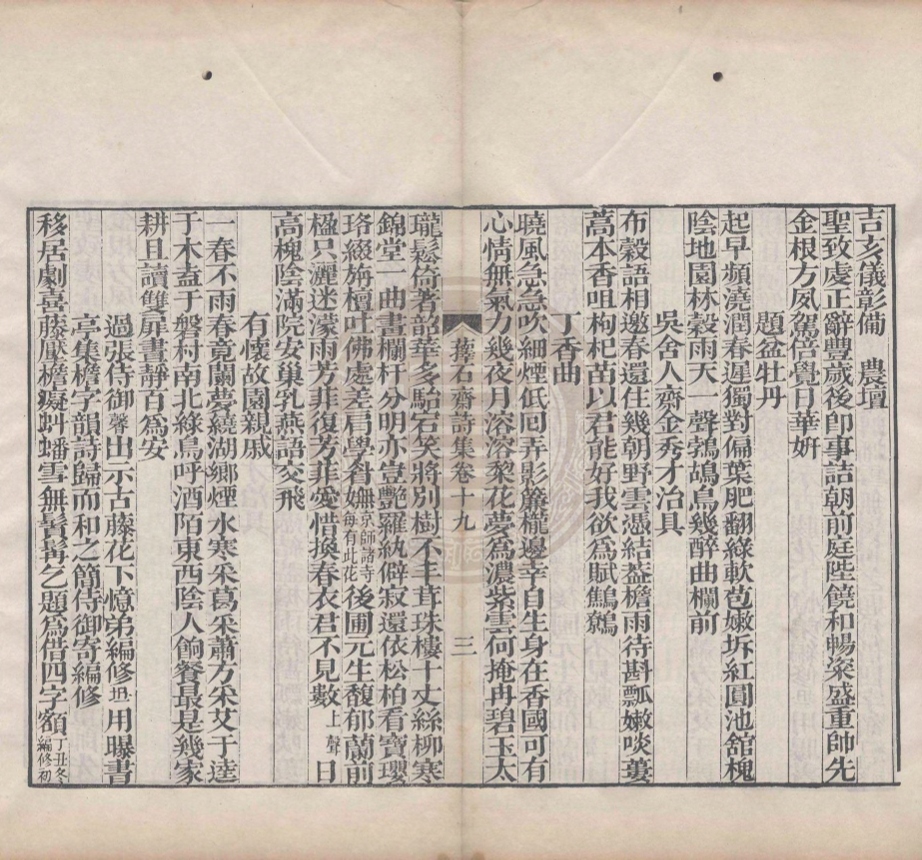 吉亥儀彰備　農壇
聖致處正辭豐歲後卽事詰朝前庭陛饒和暢粢盛重帥先
金根方夙駕倍覺日華姸
題盆牡丹
起早頻澆潤春遲獨對偏葉肥翻綠軟苞嫩坼紅圓池舘槐
陰地園林穀雨天一聲鵓鴣鳥幾醉曲欄前
吳舍人齋金秀才治具
布穀語相邀春還住幾朝野雲憑結葢檐雨待斟瓢嫩啖蔓
蒿本香咀枸杞苗以君能好我欲爲賦鷦鷯
丁香曲
曉風急急吹細煙低回弄影簾櫳邊幸自生身在香國可有
心情無氣力幾夜月溶溶棃花夢爲濃紫雲何掩冉碧玉太
蘀石齋詩集卷十九　三
瓏鬆倚著韶華多駘宕笑將別樹不丰茸珠樓十丈絲柳寒
錦堂一曲畫欄杆分明亦豈艷羅紈僻寂還依松柏看寶瓔
珞綴旃檀吐佛處差肩學眉嫵京師諸寺每有此花後圃元生馥郁蘭前
楹只灑迷濛雨芳菲復芳菲愛惜換春衣君不見數上聲日
高槐陰滿院安巢乳燕語交飛
有懷故園親戚
一春不雨春竟闌夢繞湖鄉煙水寒采葛采蕭方采艾于逵
于木盍于磐村南北綠鳥呼酒陌東西陰人餉餐最是幾家
耕且讀雙扉晝靜百爲安
過張侍御馨出示古藤花下憶弟編修坦用曝書
亭集檐字韻詩歸而和之簡侍御寄編修
移居劇喜藤壓檐癡虯蟠雪無鬚髯乞題爲借四字額丁丑冬編修初